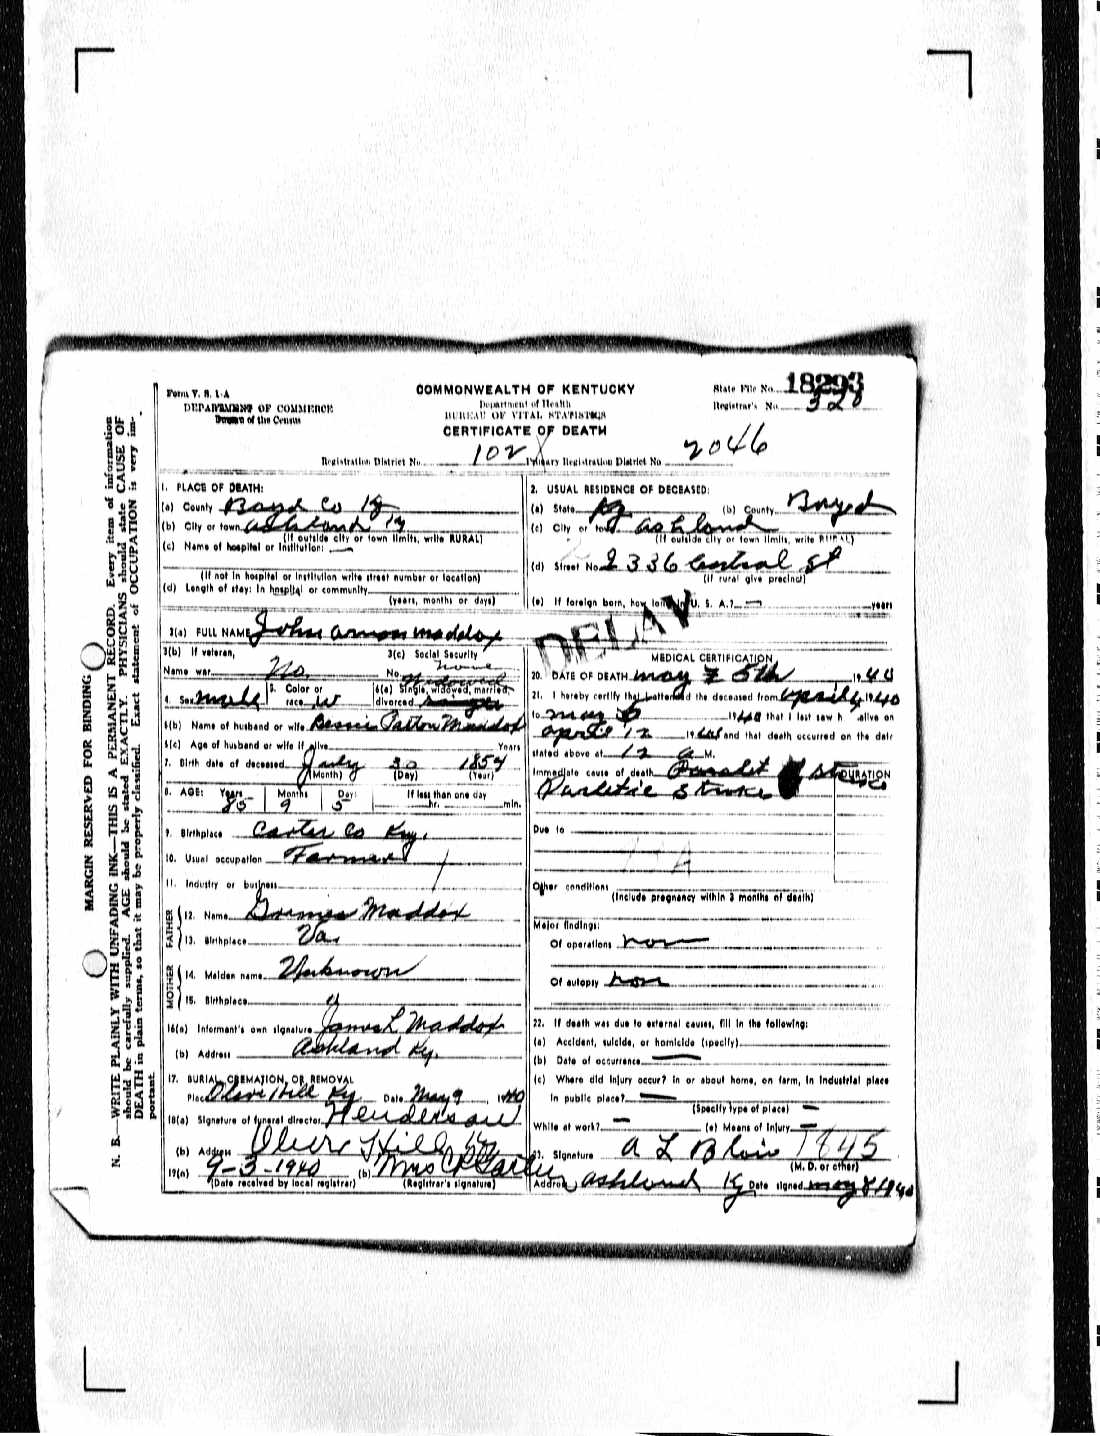 Form V. S. 1-A
DEPARTMENT OF COMMERCE
Bureau of the Census
COMMONWEALTH OF KENTUCKY
Department of Health
BUREAU OF VITAL STATISTICS
CERTIFICATE OF DEATH
State File No. 18293
Registrar's No. 320
Registration District No. 102 Primary Registration District No. 2046
MARGIN RESERVED FOR BINDING
N. B.—WRITE PLAINLY WITH UNFADING INK—THIS IS A PERMANENT RECORD. Every item of information
should be carefully supplied. AGE should be stated EXACTLY. PHYSICIANS should state CAUSE OF
DEATH in plain terms, so that it may be properly classified. Exact statement of OCCUPATION is very im-
portant.
1. PLACE OF DEATH:
(a) County Boyd Co Ky
(b) City or town Ashland Ky
(If outside city or town limits, write RURAL)
(c) Name of hospital or institution: —
(If not in hospital or institution write street number or location)
(d) Length of stay: In hospital or community
(years, months or days)
2. USUAL RESIDENCE OF DECEASED:
(a) State Ky (b) County Boyd
(c) City or town Ashland
(If outside city or town limits, write RURAL)
(d) Street No. 2336 Central St
(If rural give precinct)
(e) If foreign born, how long in U. S. A.? — years
DELAY
3(a) FULL NAME John Amon Maddox
3(b) If veteran,
Name war No.
3(c) Social Security
No. none
4. Sex male
5. Color or
race W
6(a) Single, widowed, married,
divorced widowed
6(b) Name of husband or wife Bessie Patton Maddox
6(c) Age of husband or wife if alive Years
7. Birth date of deceased July 30 1854
(Month) (Day) (Year)
8. AGE: Years Months Days If less than one day
85 9 5 hr. min.
9. Birthplace Carter Co Ky.
10. Usual occupation Farmer
11. Industry or business
FATHER
12. Name Grimes Maddox
13. Birthplace Va.
MOTHER
14. Maiden name Unknown
15. Birthplace
16(a) Informant's own signature James L Maddox
(b) Address Ashland Ky.
17. BURIAL, CREMATION, OR REMOVAL
Place Olive Hill Ky Date May 9, 1940
18(a) Signature of funeral director Henderson
(b) Address Olive Hill Ky
19(a) 9-3-1940 (b) Mrs
(Date received by local registrar) (Registrar's signature)
MEDICAL CERTIFICATION
20. DATE OF DEATH may 5th 1940
21. I hereby certify that I attended the deceased from April 1940
to may 1940 that I last saw h alive on
april 12 1940 and that death occurred on the date
stated above at 12 a M.
Immediate cause of death Stroke DURATION
Parletic Stroke
Due to
Other conditions
(Include pregnancy within 3 months of death)
Major findings:
Of operations non
Of autopsy non
22. If death was due to external causes, fill in the following:
(a) Accident, suicide, or homicide (specify)
(b) Date of occurrence —
(c) Where did injury occur? In or about home, on farm, in industrial place
in public place? —
(Specify type of place) —
While at work? — (e) Means of Injury —
23. Signature A L Blair 1845
(M. D. or other)
Address Ashland Ky Date signed may 8 1940